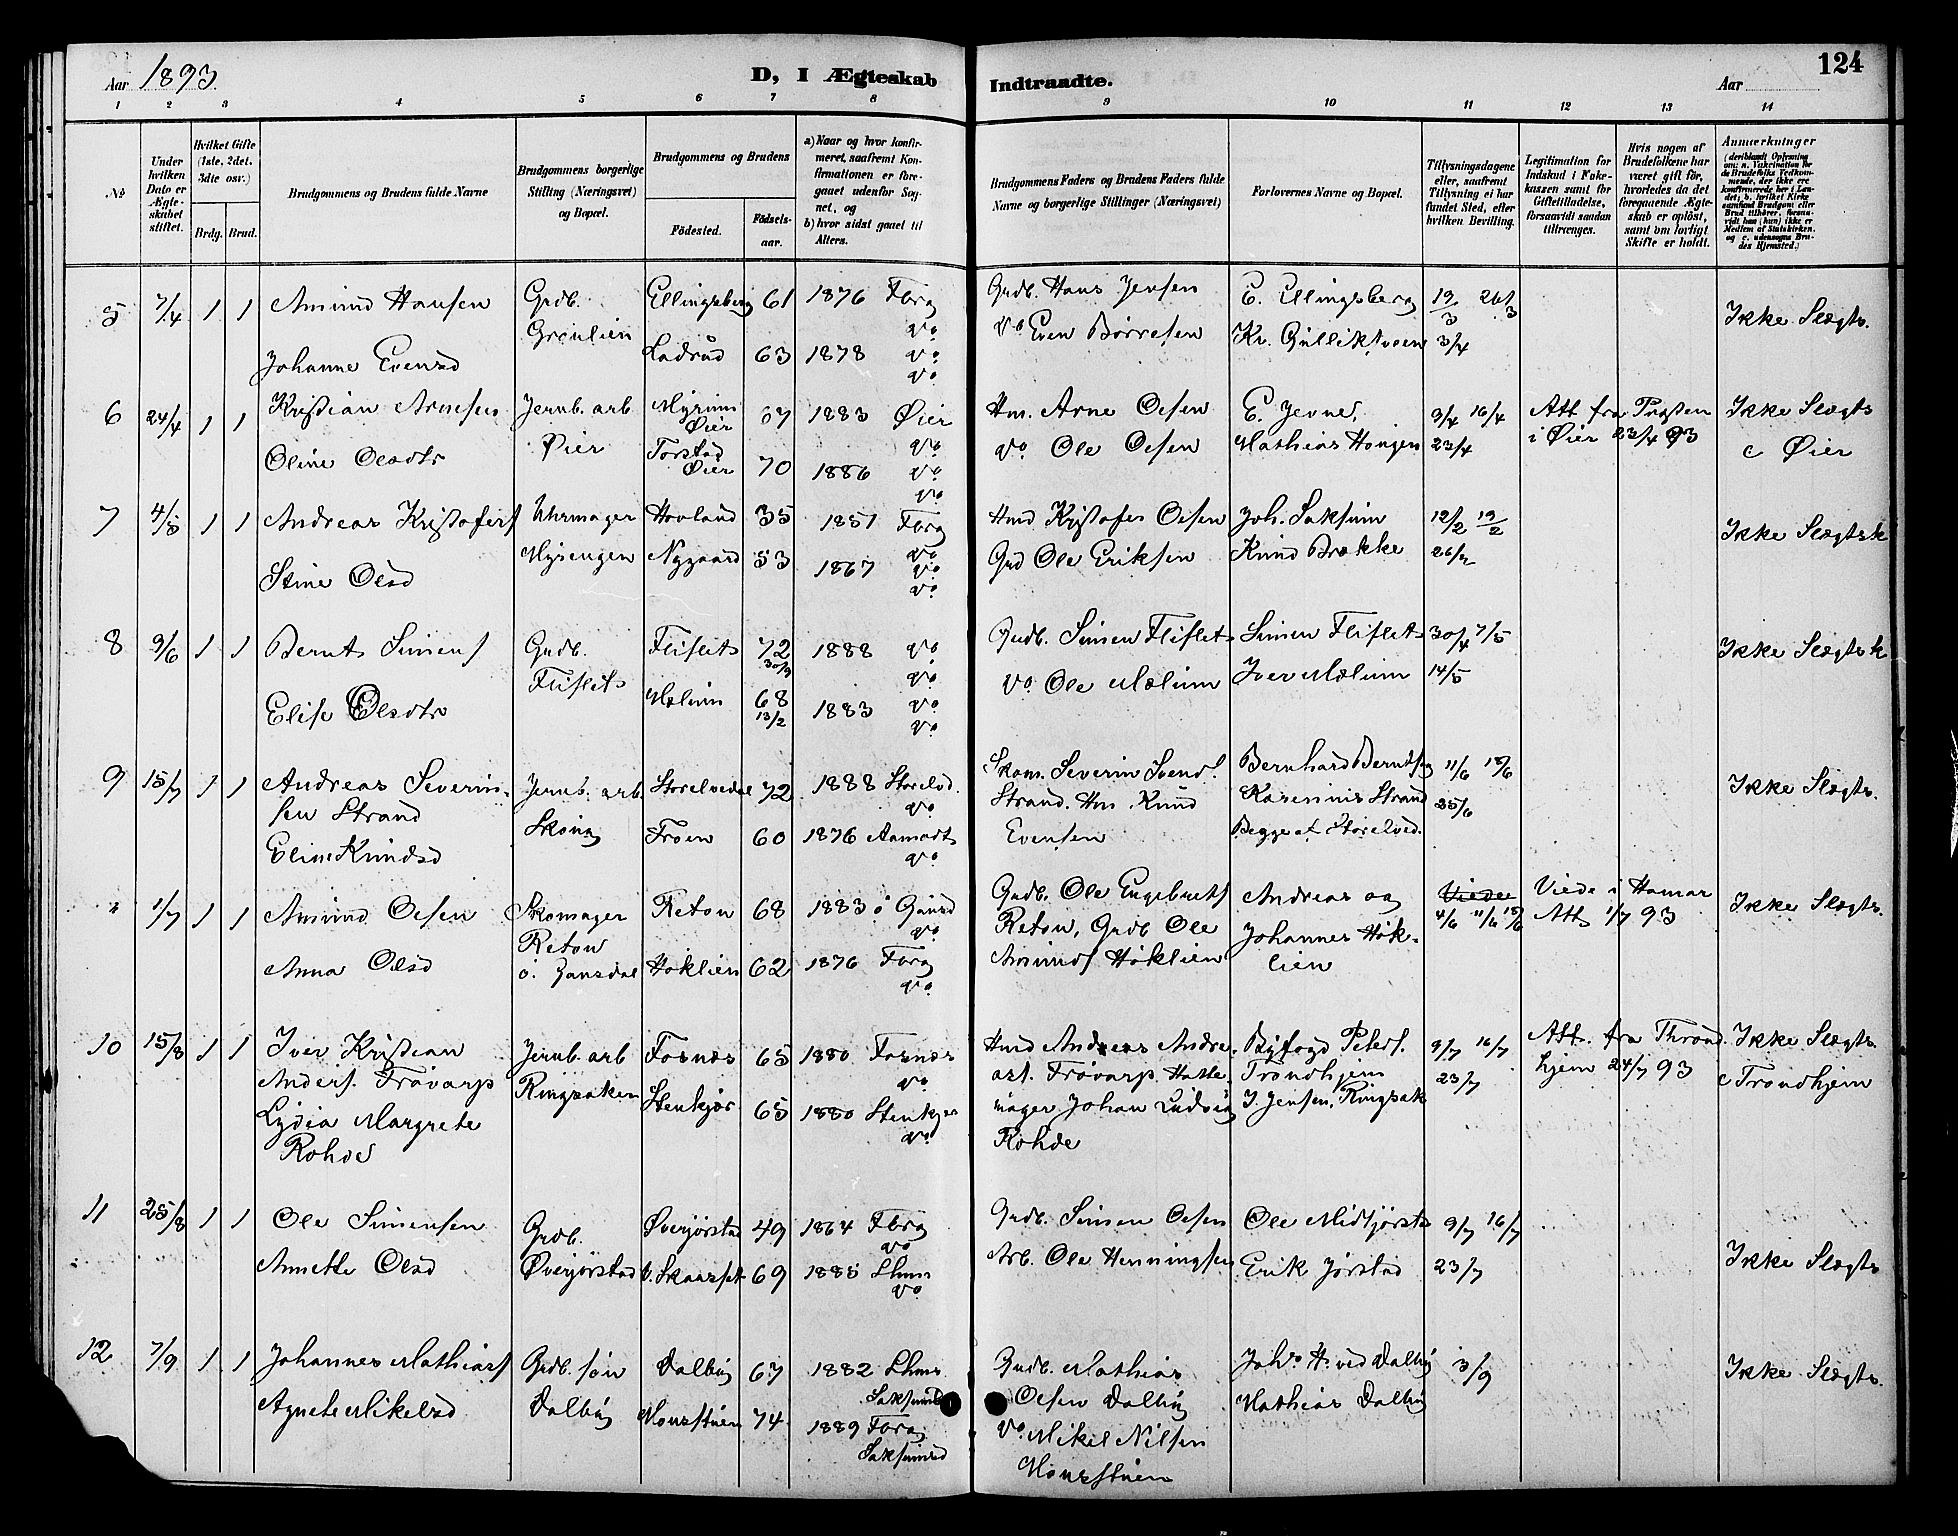 Aar 1893.
D, I Ægteskab Indtraadte.
Aar
124
1 2 3 4 5 6 7 8 9 10 11 12 13 14
No
Under hvilken Dato er Ægteskabet stiftet.
Hvilket Gifte (1ste, 2det. 3dte osv.)
Brdg. Brud.
Brudgommens og Brudens fulde Navne
Brudgommens borgerlige Stilling (Næringsvei) og Bopæl.
Brudgommens og Brudens
Födested. Födselsaar.
a) Naar og hvor konfirmeret, saafremt Konfirmationen er foregaaet udenfor Sognet, og
b) hvor sidst gaaet til Alters.
Brudgommens Faders og Brudens Faders fulde Navne og borgerlige Stillinger (Næringsvei)
Forlovernes Navne og Bopæl.
Tillysningsdagene eller, saafremt Tillysning ei har fundet Sted, efter hvilken Bevilling.
Legitimation for Indskud i Enkekassen samt for Giftetilladelse, forsaavidt saadan tiltrænges.
Hvis nogen af Brudefolkene har været gift før, hvorledes da det foregaaende Ægteskab er opløst, samt om lovligt Skifte er holdt.
Anmærkninger
5 7/4 1 1 Amund Hansen Grdb. Ellingsberg 61 1876 Fbrg Grdb. Hans Jensen E. Ellingsberg 19/3 26/3 Ikke Slægts.
Johanne Evensd Ladrud 63 1878 vo vo Even Børresen 3/4
6 24/4 1 1 Kristian Arnesen Jernb. arb Øier 67 1883 Øier Hm. Arne Olsen E. Jevne, 9/4 16/4 Att fra Præsten Ikke Slægts
Oline Olsdtr Øier Torstad Øier 70 1886 vo vo Ole Olsen Mathias Hougen 23/4 i Øier 23/4 93 c Øier
7 4/5 1 1 Andreas Kristofers Uhrmager Hovland 35 1851 Fbrg Hmd Kristofer Olsen Joh. Saksum 12/2 19/2 Ikke Slægtsk
Stine Olsd Mysengen Nygaard 53 1867 vo Grd Ole Eriksen Knud Brække 26/2
8 9/6 1 1 Bernt Simens Grdb. Fliflet 72 30/9 1888 vo Grdb. Simen Fliflet Simen Fliflet 30/4 7/5 Ikke Slægtsk
Elise Olsdtr Fliflet Mælum 68 13/2 1883 vo vo Ole Mælum Iver Mælum 14/5
9 15/7 1 1 Andreas Severinsen Strand Jernb. arb. Storelvedal 72 1888 Storelvd. Skom. Severin Svends. Bernhard Berntsen 11/6 18/6 Ikke Slægts.
Eline Knudsd Skoug Froen 60 1876 Aamodt vo Strand. Hm. Knud Evensen Karenius Strand 25/6
Begge af Storelvd.
" 1/7 1 1 Amund Olsen Skomager Reton 68 1883 ö Gausd Grdb. Ole Engebrets Andreas og Viede i Hamar Ikke Slægts.
Anna Olsd Reton ö. Gausdal Høklien 62 1876 Fbrg vo Reton, Grdb Ole Amunds Høklien Johannes Høklien 4/6 11/6 18/6 Att 1/7 93
10 15/8 1 1 Iver Kristian Anders. Frövarp Jernb. arb Fosnæs 65 1880 Fosnæs vo Hmd Andreas Andreas. Frövarp Hattemager Johan Ludvig Rohde Byfogd Peters. Trondhjem 9/7 16/7 Att. fra Throndhjem 24/7 93 Ikke Slægts.
Lydia Margrete Rohde Ringsaker Stenkjær 65 1880 Stenkjær vo I. Jensen, Ringsak 23/7 c Trondhjem
11 25/8 1 1 Ole Simensen Grdb. Øverjørstad 49 1864 Fbrg vo Grdb. Simen Olsen Ole Midtjørst 9/7 16/7
Annette Olsd Øverjørstad Skaarset 69 1885 Lhmr vo Arb. Ole Henningsen Erik Jørstad 23/7 Ikke Slægts
12 7/9 1 1 Johannes Mathias Grdb. søn Dalby 67 1882 Lhmr Saksuml Grdb. Mathias Olsen Dalby Johs H. ved Dalby 3/9 Ikke Slægts.
Agnete Mikelsd Dalby Mourstuen 74 1889 Fbrg Saksuml vo Mikel Nilsen Mourstuen Mathias Dalby